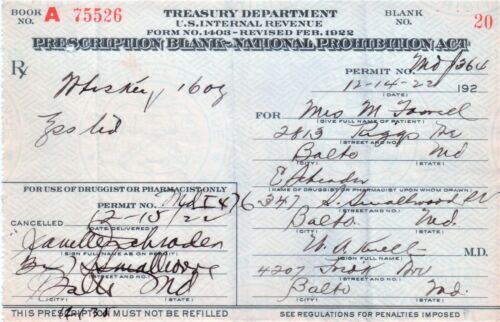 BOOK NO. A 75526
TREASURY DEPARTMENT
U.S. INTERNAL REVENUE
FORM NO. 1403 - REVISED FEB. 1922
BLANK NO. 20
PRESCRIPTION BLANK - NATIONAL PROHIBITION ACT
Rx
PERMIT NO. Md 1364
12-14-22 192
(DATE)
Whiskey 16oz
FOR Mrs M
(GIVE FULL NAME OF PATIENT)
2813 Riggs Ave
(STREET AND NO.)
Balto Md
(CITY) (STATE)
E Schrader
(NAME OF DRUGGIST OR PHARMACIST UPON WHOM DRAWN)
347 S. Smallwood
(STREET AND NO.)
Balto Md.
(CITY) (STATE)
M.D.
(SIGN FULL NAME)
4207 Ave
(STREET AND NO.)
Balto Md.
(CITY) (STATE)
FOR USE OF DRUGGIST OR PHARMACIST ONLY
PERMIT NO. Md
CANCELLED 12-15/22
(DATE DELIVERED)
Schrader
Smallwood
Balto Md
(CITY) (STATE)
THIS PRESCRIPTION MUST NOT BE REFILLED
SEE REGULATIONS FOR PENALTIES IMPOSED